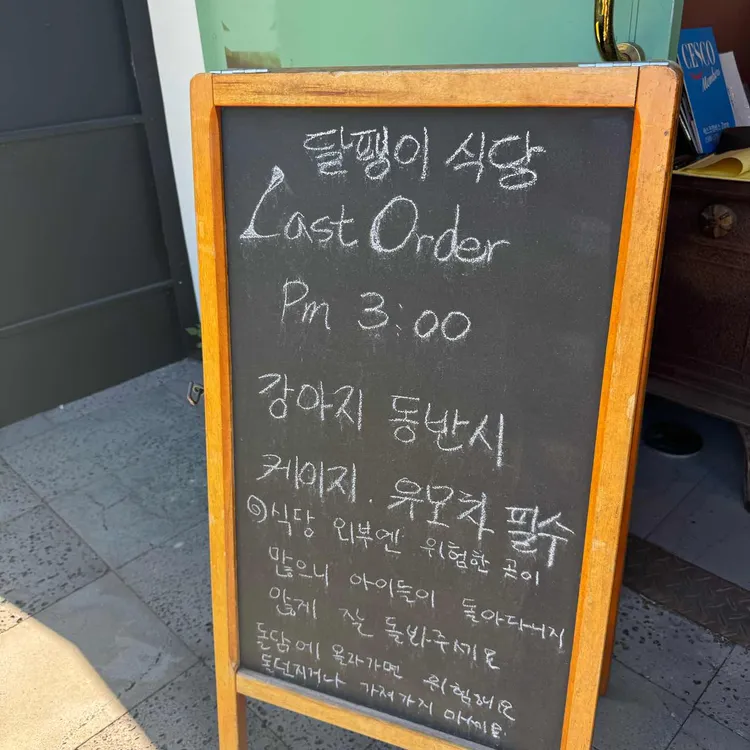 달팽이 식당
Last Order
Pm 3:00
강아지 동반시
케이지. 유모차 필수
식당 외부엔 위험한 곳이
많으니 아이들이 돌아다니지
않게 잘 돌봐주세요
돌담에 올라가면 위험해요
돌던지거나 가져가지 마세요.
CESCO
Members